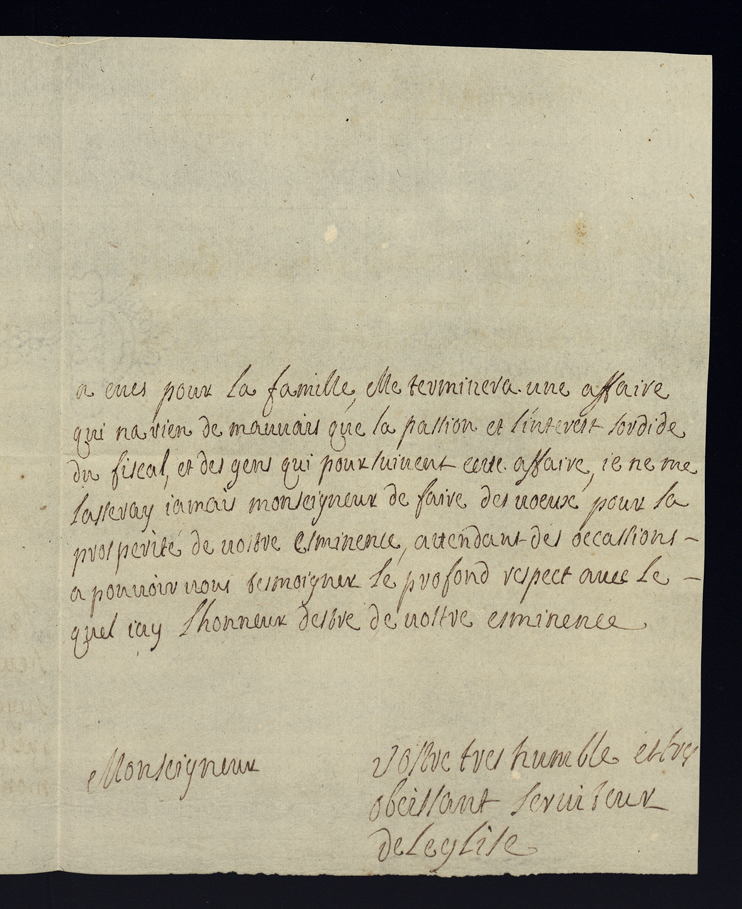 a eues pour la famille, elle terminera une affaire
qui na rien de mauuais que la passion et linterest sordide
du fiscal, et des gens qui poursuiuent cette affaire, ie ne me
lasseray iamais monseigneur de faire des uoeux pour la
prosperité de uostre esminence, attendant des occassions –
a pouuoir uous tesmoigner le profond respect auec le –
quel iay lhonneur destre de uostre esminence
Monseigneur
Vostre tres humble et tres
obeissant seruiteur
deleglise